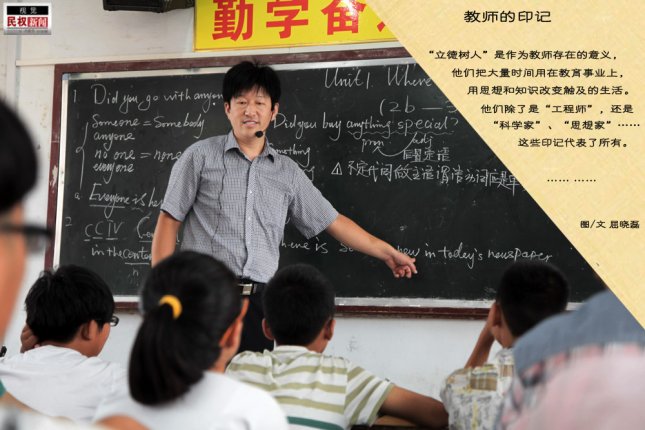 视觉
民权新闻
勤学奋
教师的印记
“立德树人”是作为教师存在的意义，
他们把大量时间用在教育事业上，
用思想和知识改变触及的生活。
他们除了是“工程师”，还是
“科学家”、“思想家”……
这些印记代表了所有。
…… ……
图/文 屈晓磊
Unit1. Where
1 Did you go with anyone
Someone = Somebody
anyone
no one = none
Everyone is here
2
CCTV
in the center
(2b —
Did you buy anything special?
pron adj
后置定语
⚠ 不定代词做主语谓语动词应是单
here is something new in today's newspaper